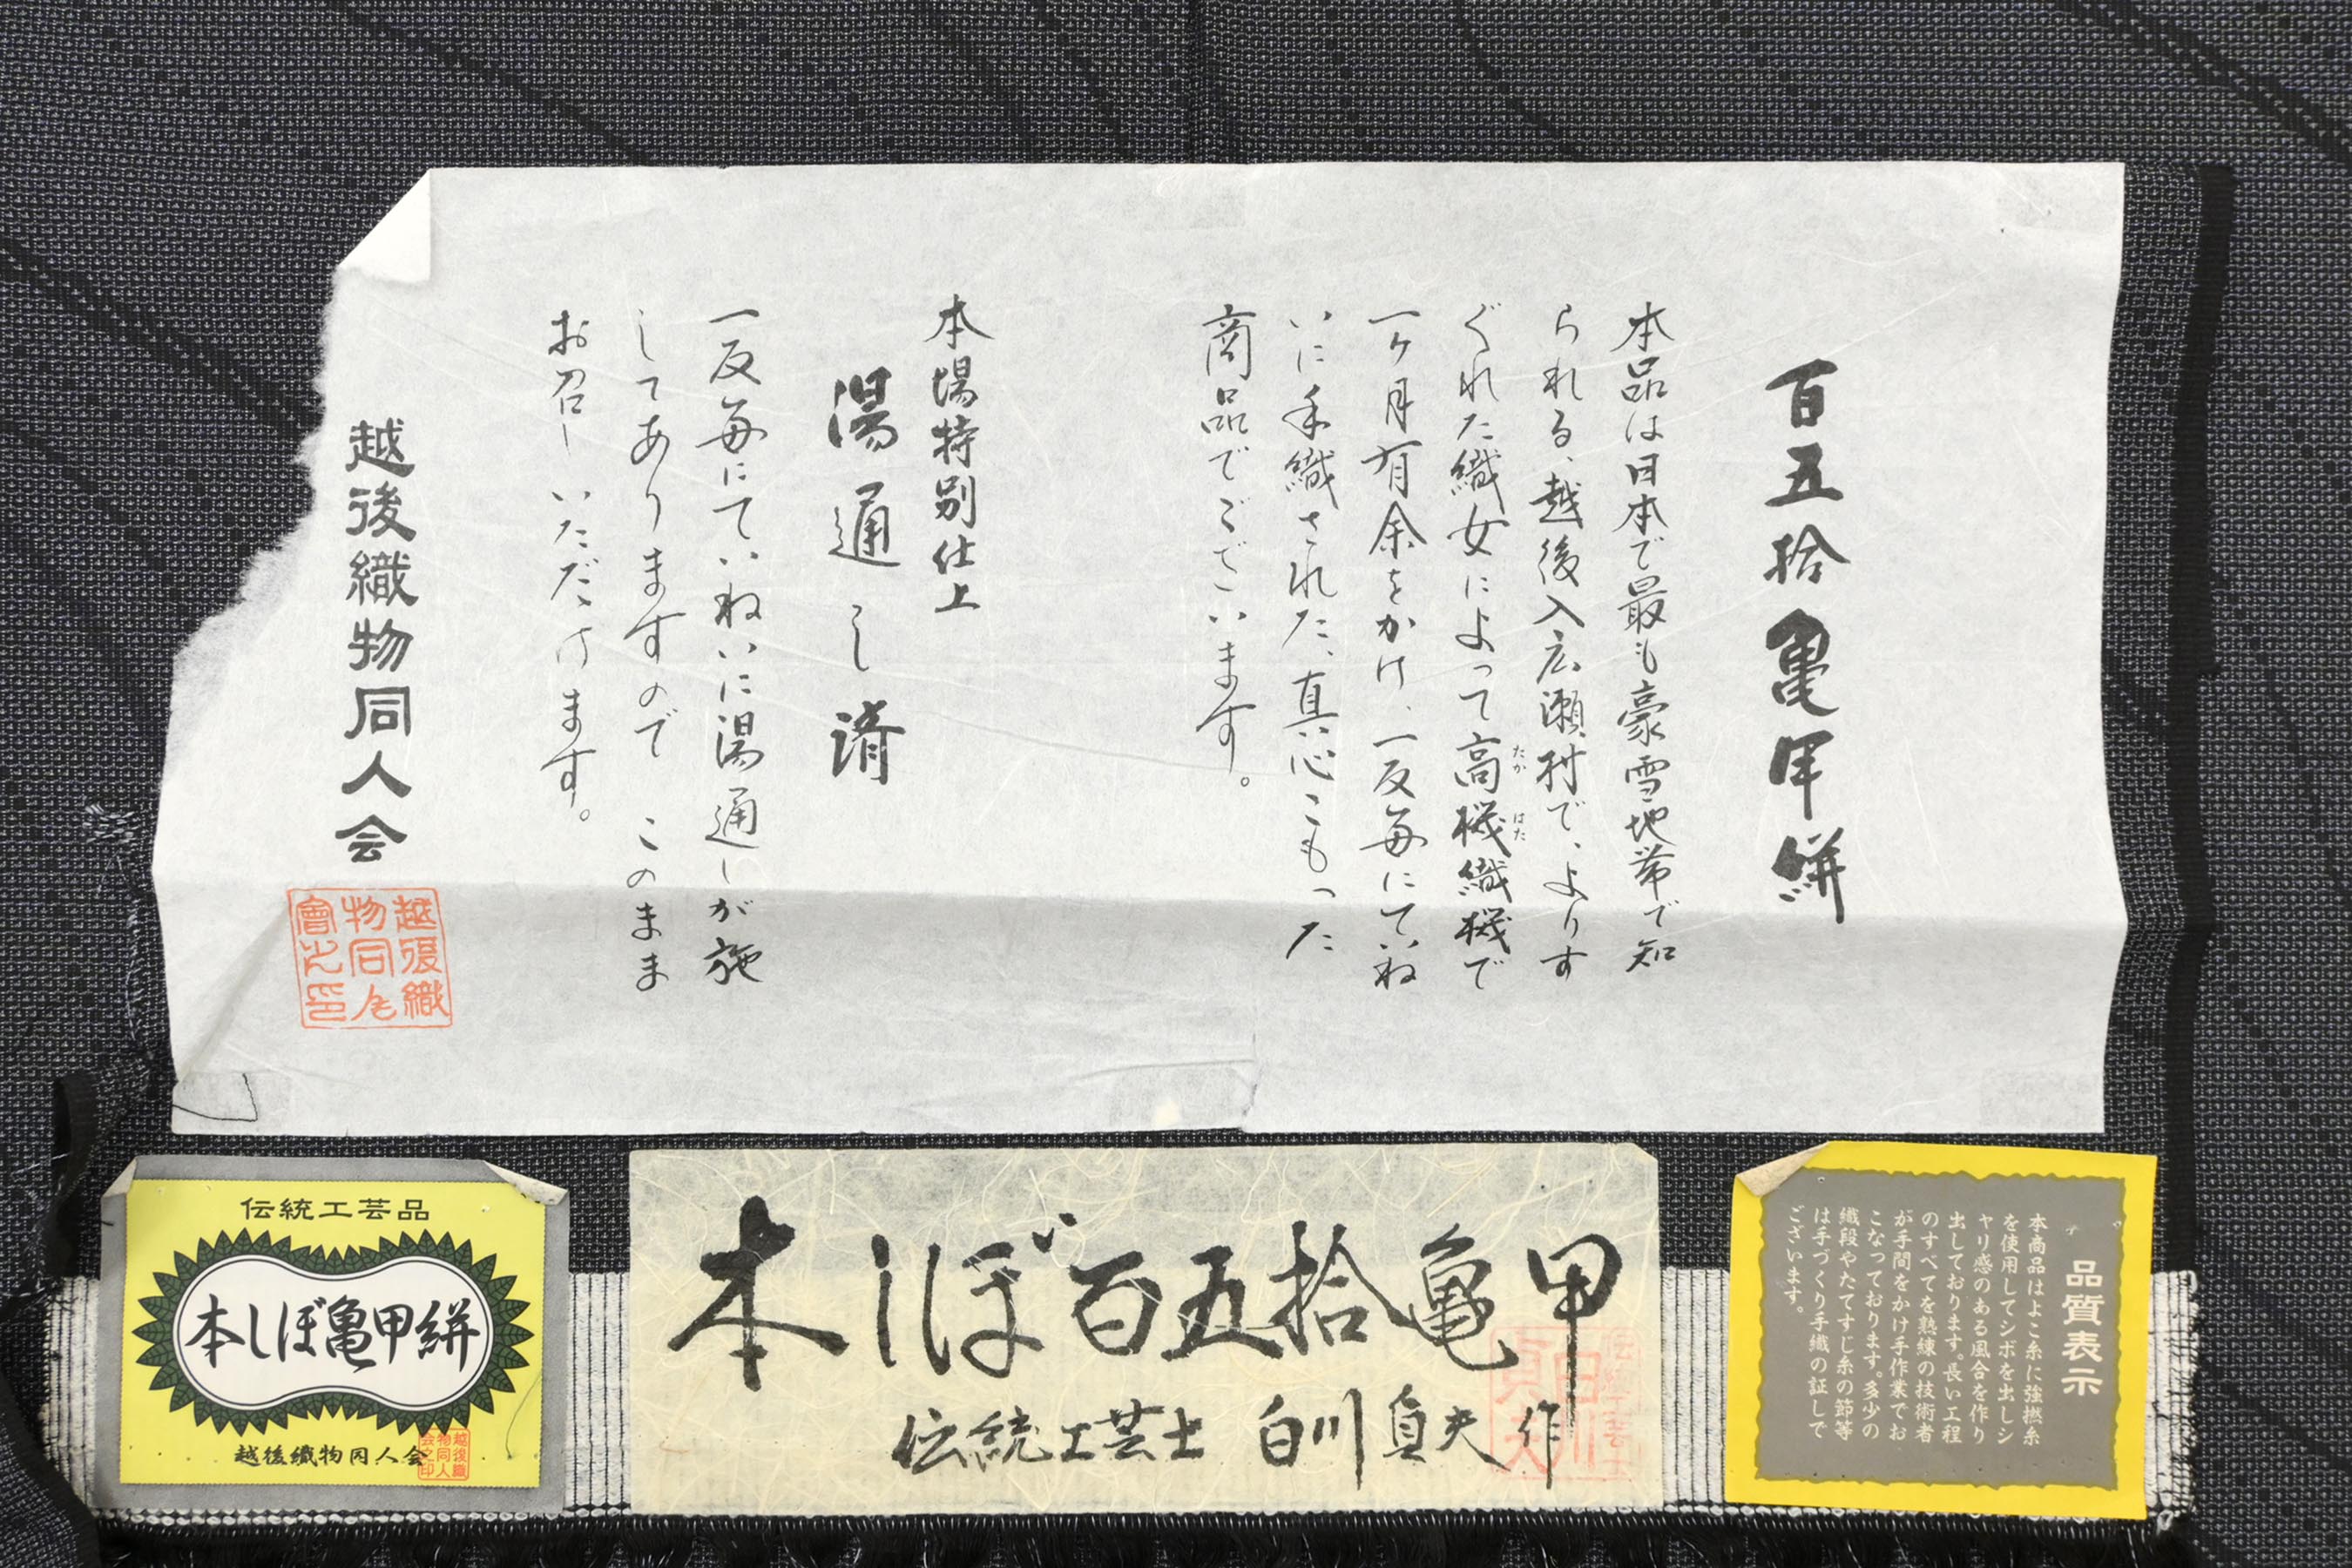 百五拾亀甲絣
本品は日本で最も豪雪地帯で知
られる、越後入広瀬村で、よりす
ぐれた織女によって高機織機で
たか はた
一ヶ月有余をかけ、一反毎にていね
いに手織された、真心こもった
商品でございます。
本場特別仕上
湯通し済
一反毎にていねいに湯通しが施
してありますので このまま
お召しいただけます。
越後織物同人会
越後織
物同人
會之印
伝統工芸品
本しぼ亀甲絣
越後織物同人会
越後織
物同人
会之印
本しぼ百五拾亀甲
伝統工芸士 白川貞夫作
伝統工芸士
白川
貞夫
品質表示
本商品はよこ糸に強撚糸
を使用してシボを出しシ
ャリ感のある風合を作り
出しております。長い工程
のすべてを熟練の技術者
が手間をかけ手作業でお
こなっております。多少の
織段やたてすじ糸の節等
は手づくり手織の証しで
ございます。